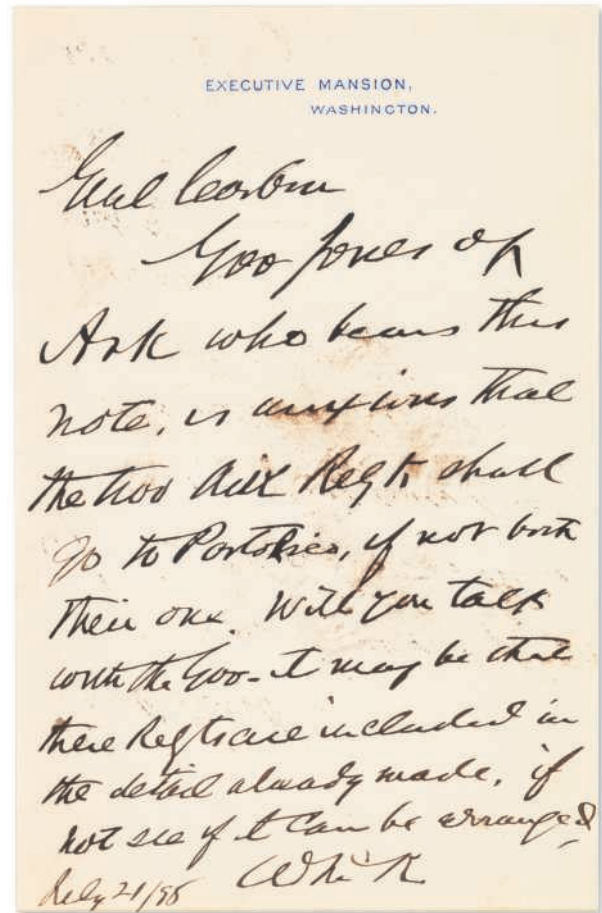 EXECUTIVE MANSION,
WASHINGTON.
Genl Corbin
Gov Jones of
Ark who bears this
note, is anxious that
the two Ark Regts shall
go to PortoRico, if not both
then one. Will you talk
with the Gov - it may be that
these Regts are included in
the detail already made, if
not see if it can be arranged,
July 21/98 WMcK